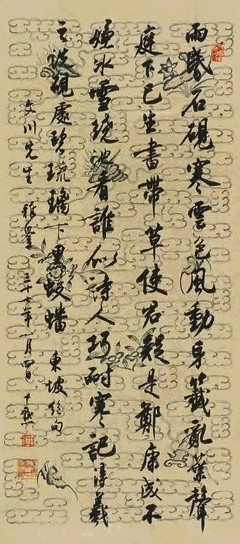 雨昏石硯寒雲色風動牙籤亂葉聲
庭下已生書帶草使君疑是鄭康成不
嫌冰雪繞池看誰似詩人巧耐寒記得羲
之洗硯處碧琉璃下黑蛟蟠 東坡絕句
文川先生 雅鑒 三十七年一月四日